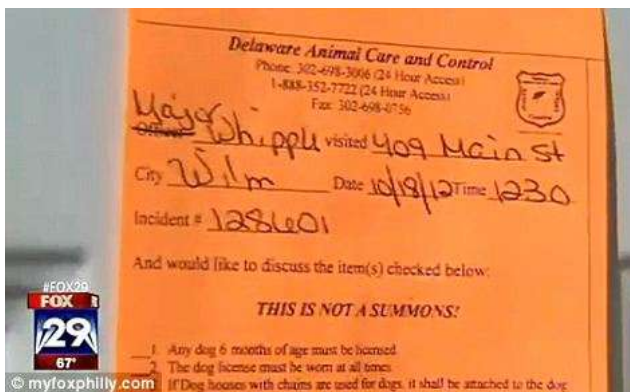 Delaware Animal Care and Control
Phone: 302-698-3006 (24 Hour Access)
1-888-352-7722 (24 Hour Access)
Fax: 302-698-0756
Major
Officer Whipple visited 409 Main St
City Wilm Date 10/18/12 Time 1230
Incident # 128601
And would like to discuss the item(s) checked below:
THIS IS NOT A SUMMONS!
1. Any dog 6 months of age must be licensed
2. The dog license must be worn at all times
If Dog houses with chains are used for dogs, it shall be attached to the dog
#FOX29
FOX
29
67°
© myfoxphilly.com